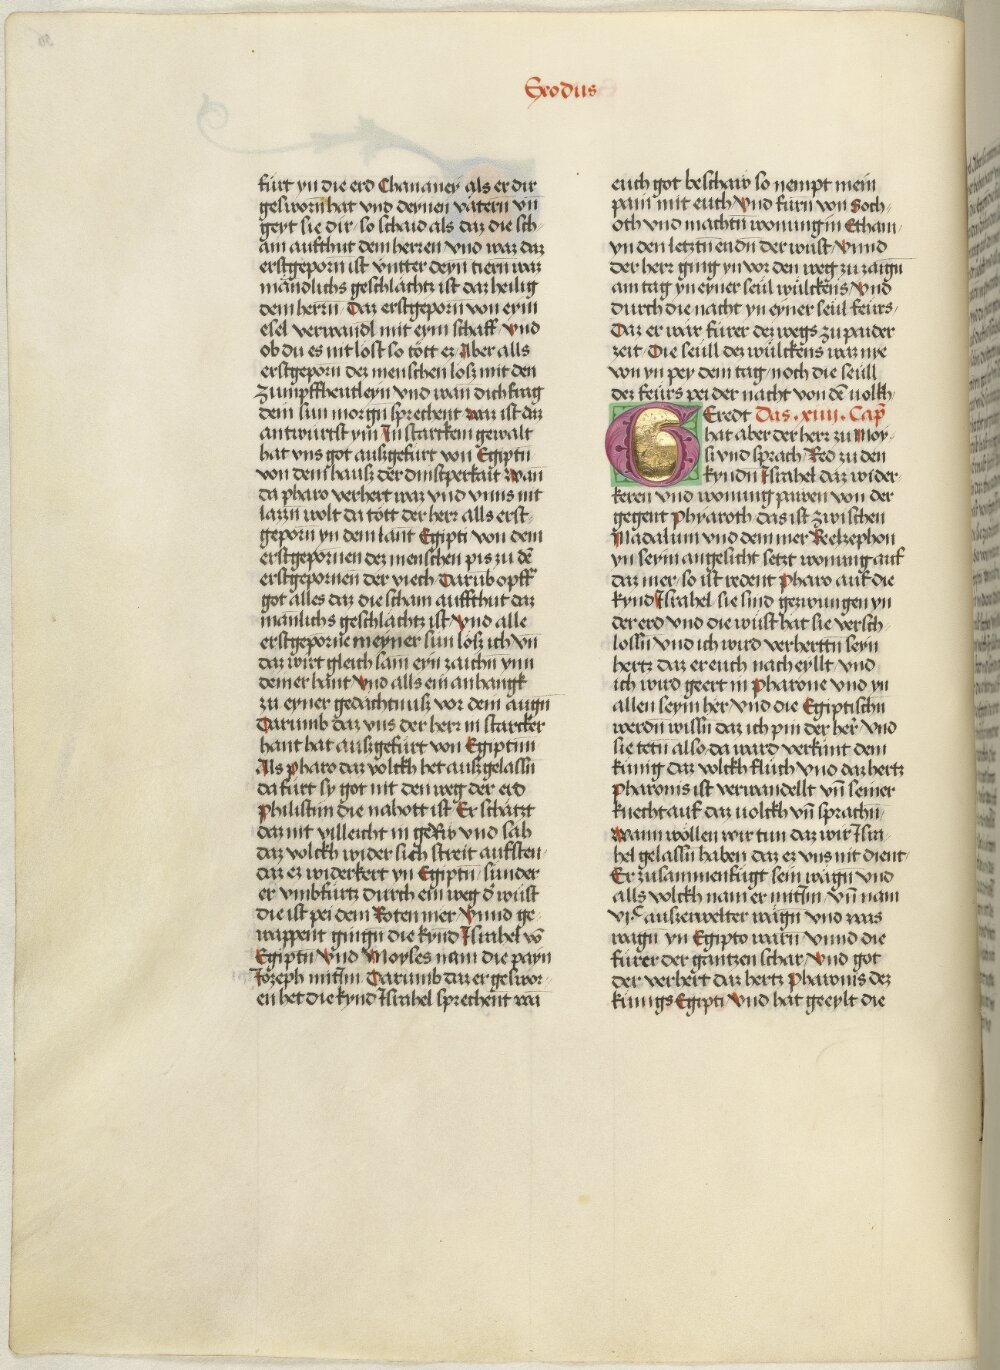 Exodus
fürt yn die erd Chananei als er dir
gesworn hat vnd deynen vätern vn̄
geyt sie dir / so schaid als daz die sch-
am aufthut dem herren vnd waz daz
erstgeporn ist vntter deyn tiern waz
mändlichs geschlächtz ist daz heilig
dem herrn / Daz erstgeporn von eym
esel verwandl mit eym schaff / vnd
ob du es nit lost so tött ez Aber alls
erstgeporn dez menschen losz mit den
zumpffheutleyn vnd wan̄ dich frag
dein sun morgn̄ sprechent waz ist daz
antwürtst ym In starckem gewalt
hat vns got auszgefürt von Egiptn̄
von dem hausz der dinstperkait wan̄
da pharo verhert waz vnd vnns nit
lazzn̄ wolt da tött der herr alls erst-
geporn yn dem lant Egipti von dem
erstgepornen dez menschen pis zu dē
erstgepornen der viech Darūb opff
got alles daz die scham auffthut daz
mänlichs geschlächtz ist / vnd alle
erstgeporne meyner sun losz ich vn̄
daz wirt gleich sam eyn zaichn̄ ynn
deiner hant Vnd alls ein anhangk
zu eyner gedächtnusz vor dein augn̄
Darumb daz vns der herr in starcker
hant hat auszgefürt von Egiptnn
Als pharo daz volckh het auszgelassn̄
da fürt sy got nit den weg der erd
Philistim die nahott ist Er schätzt
daz nit villeicht in geRiv vnd sah
daz volckh wider sich streit aufsten-
daz ez widerkert yn Egiptn̄ / sunder
er vmbfürtz durch ein weg d' wüst
die ist pei dem Roten mer / Vnnd ge-
wappent gingn̄ die kynd Israhel vō
Egiptn̄ Vnd Moyses nam die payn
Joseph mit im Darumb daz er geswor-
en het die kynd Israhel sprechent wa
euch got beschaw so nempt mein
pain mit euch Vnd fürn von Soch-
oth vnd machtn̄ wonung in Etham
yn den letztn̄ endn̄ der wüst / Vnnd
der herr ging yn vor den weg zu zaign̄
am tag yn eyner seül wülckens / Vnd
durch die nacht yn eyner seül feürs /
Daz er waz fürer dez wegs zu paider
zeit / Die seüll dez wülckens waz nye
von yn pey dem tag / noch die seüll
dez feürs pei der nacht von dē volkh /
GEredt Das · xiiii · Cap̄
hat aber der herr zu Moy-
si vnd sprach / Red zu den
kyndn̄ Israhel daz wider-
keren vnd wonung pawen von der
gegent Phyaroth das ist zwischen
Madalum vnd dem mer Beelzephon
yn seym angesicht setzt wonung auf
daz mer / so ist redent Pharo auf die
kynd Israhel sie sind gezwungen yn
der erd vnd die wüst hat sie versch-
lossn̄ vnd ich wird verherttn̄ seyn
hertz daz er euch nach eyllt / vnd
ich wird geert in Pharone vnd yn
allen seym her / Vnd die Egiptischn̄
werdn̄ wissn̄ daz ich pin der her / vnd
sie tetn̄ also / da ward verkünt dem
künig daz volckh fluch vnd daz hertz
Pharonis ist verwandellt vn̄ seiner
knecht auf daz uolckh vn̄ sprachn̄
Wann wöllen wir tun daz wir Isra
hel gelassn̄ haben daz ez vns nit dient /
Er zusammenfügt sein wägn̄ vnd
alls volckh nam er mit im / vn̄ nam
vjc auszerwelter wägn̄ vnd was
wägn̄ yn Egipto warn̄ vnnd die
fürer der gantzen schar / Vnd got
der verhert daz hertz Pharonis dez
künigs Egipti Vnd hat geeylt die